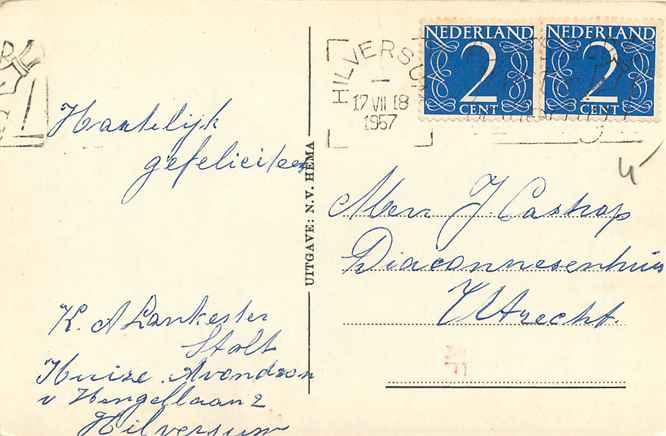 NEDERLAND
2
CENT
NEDERLAND
2
CENT
HILVERSUM
17 VII 18
1957
Hartelijk
gefeliciteerd
UITGAVE: N.V. HEMA
Mevr J. Castrop
Diaconnesenhuis
Utrecht.
K. A Lankester
Stolt
Huize Avondzon
v Hengellaan 2
Hilversum